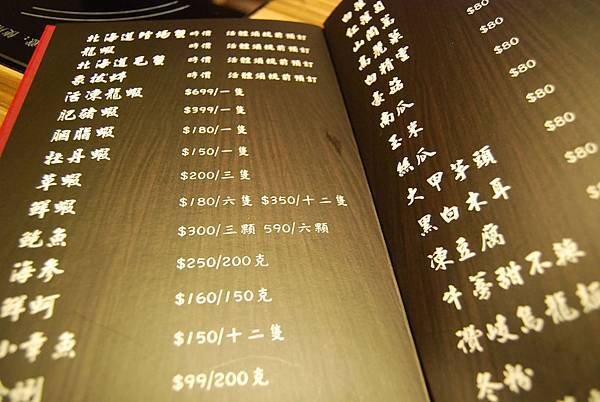 北海道鱈場蟹 時價 活體須提前預訂
龍蝦 時價 活體須提前預訂
北海道毛蟹 時價 活體須提前預訂
象拔蚌 時價 活體須提前預訂
活凍龍蝦 $699/一隻
肥豬蝦 $399/一隻
胭脂蝦 $180/一隻
牡丹蝦 $150/一隻
草蝦 $200/三隻
鮮蝦 $180/六隻 $350/十二隻
鮑魚 $300/三顆 590/六顆
海參 $250/200克
鮮蚵 $160/150克
小章魚 $150/十二隻
$99/200克
$80
$80
$80
$80
$80
$80
$80
南瓜
玉米
絲瓜
大甲芋頭
黑白木耳
凍豆腐
牛蒡甜不辣
讚岐烏龍麵
冬粉